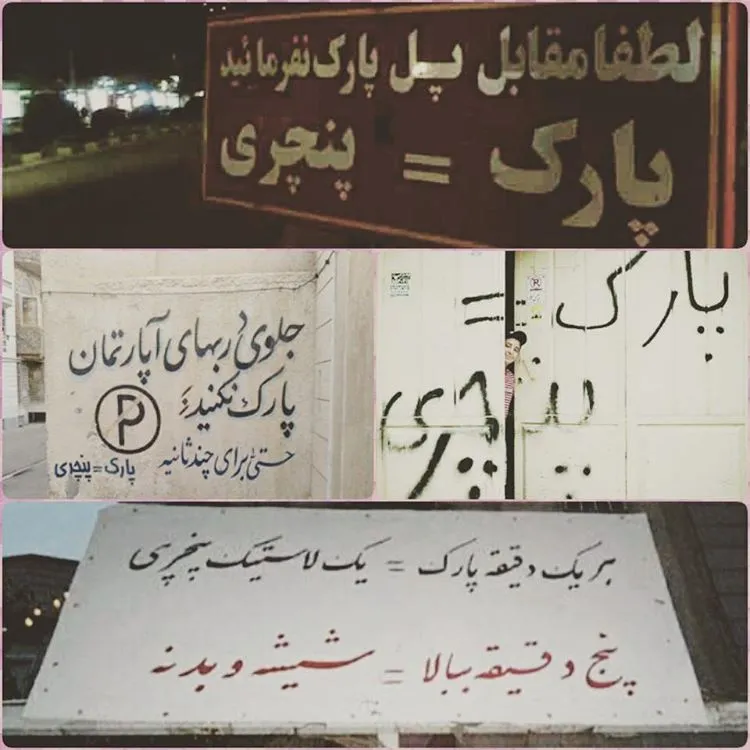 لطفا مقابل پل پارک نفرمائید
پارک = پنچری
جلوی دربهای آپارتمان
پارک نکنید
حتی برای چند ثانیه
پارک = پنچری
پارک =
پنچری
هر یک دقیقه پارک = یک لاستیک پنچری
پنج دقیقه ببالا = شیشه و بدنه